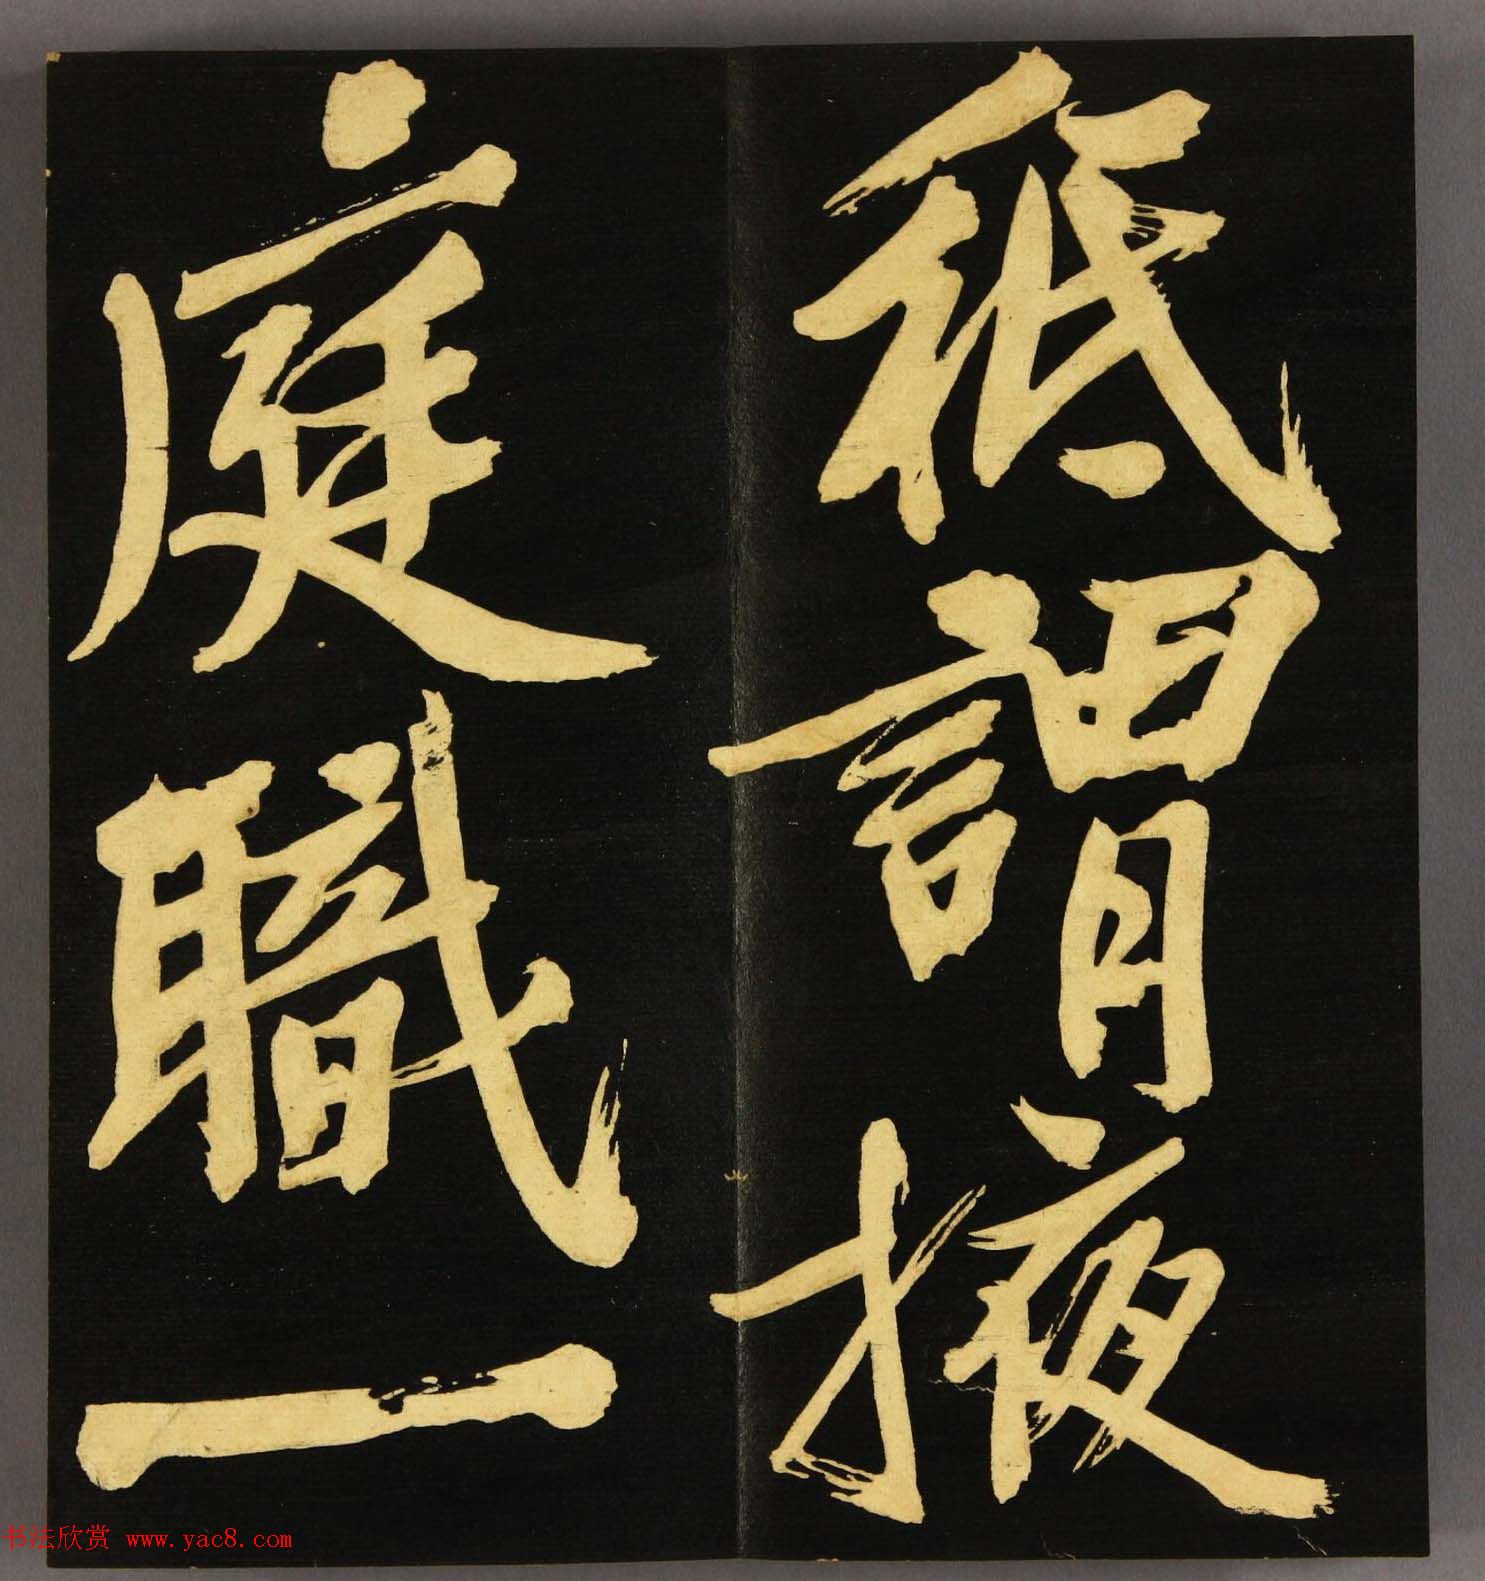 秪謂掖
庭職一
书法欣赏 www.yac8.com